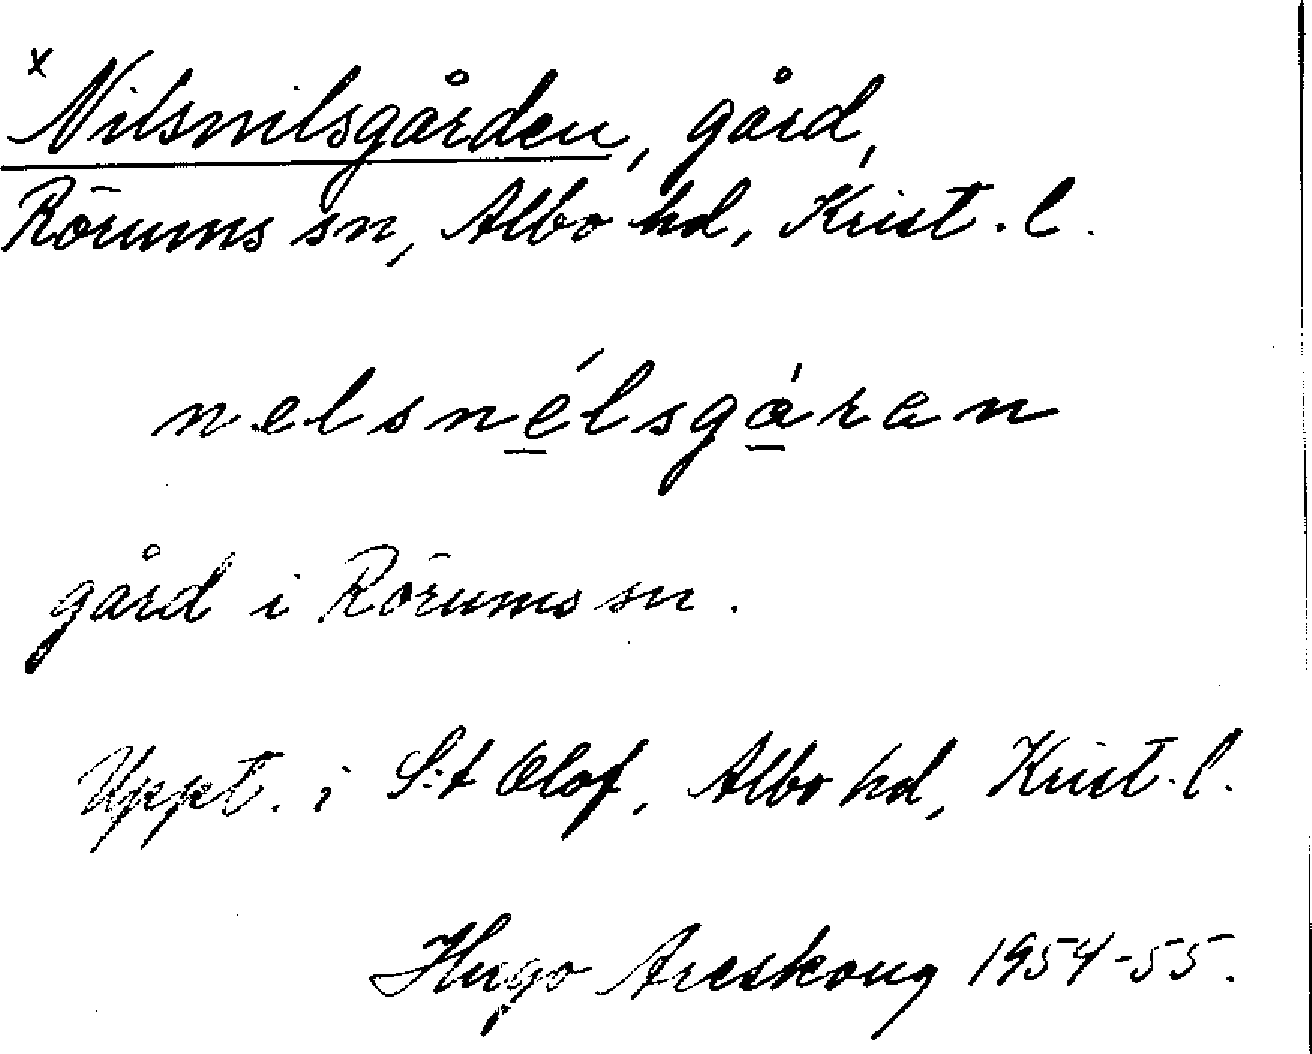 x
Nilsnilsgården, gård,
Rörums sn, Albo hd, Krist. l.
nelsnélsgáran
gård i Rörums sn.
Uppt. i S:t Olof, Albo hd, Krist. l.
Hugo Areskoug 1954-55.